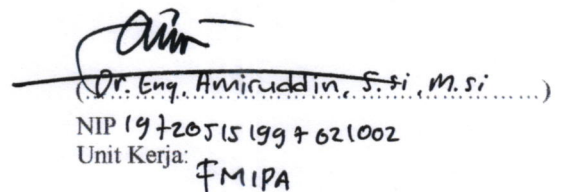 (Dr. Eng. Amiruddin, S.si, M.si)
NIP 197205151997021002
Unit Kerja:
FMIPA